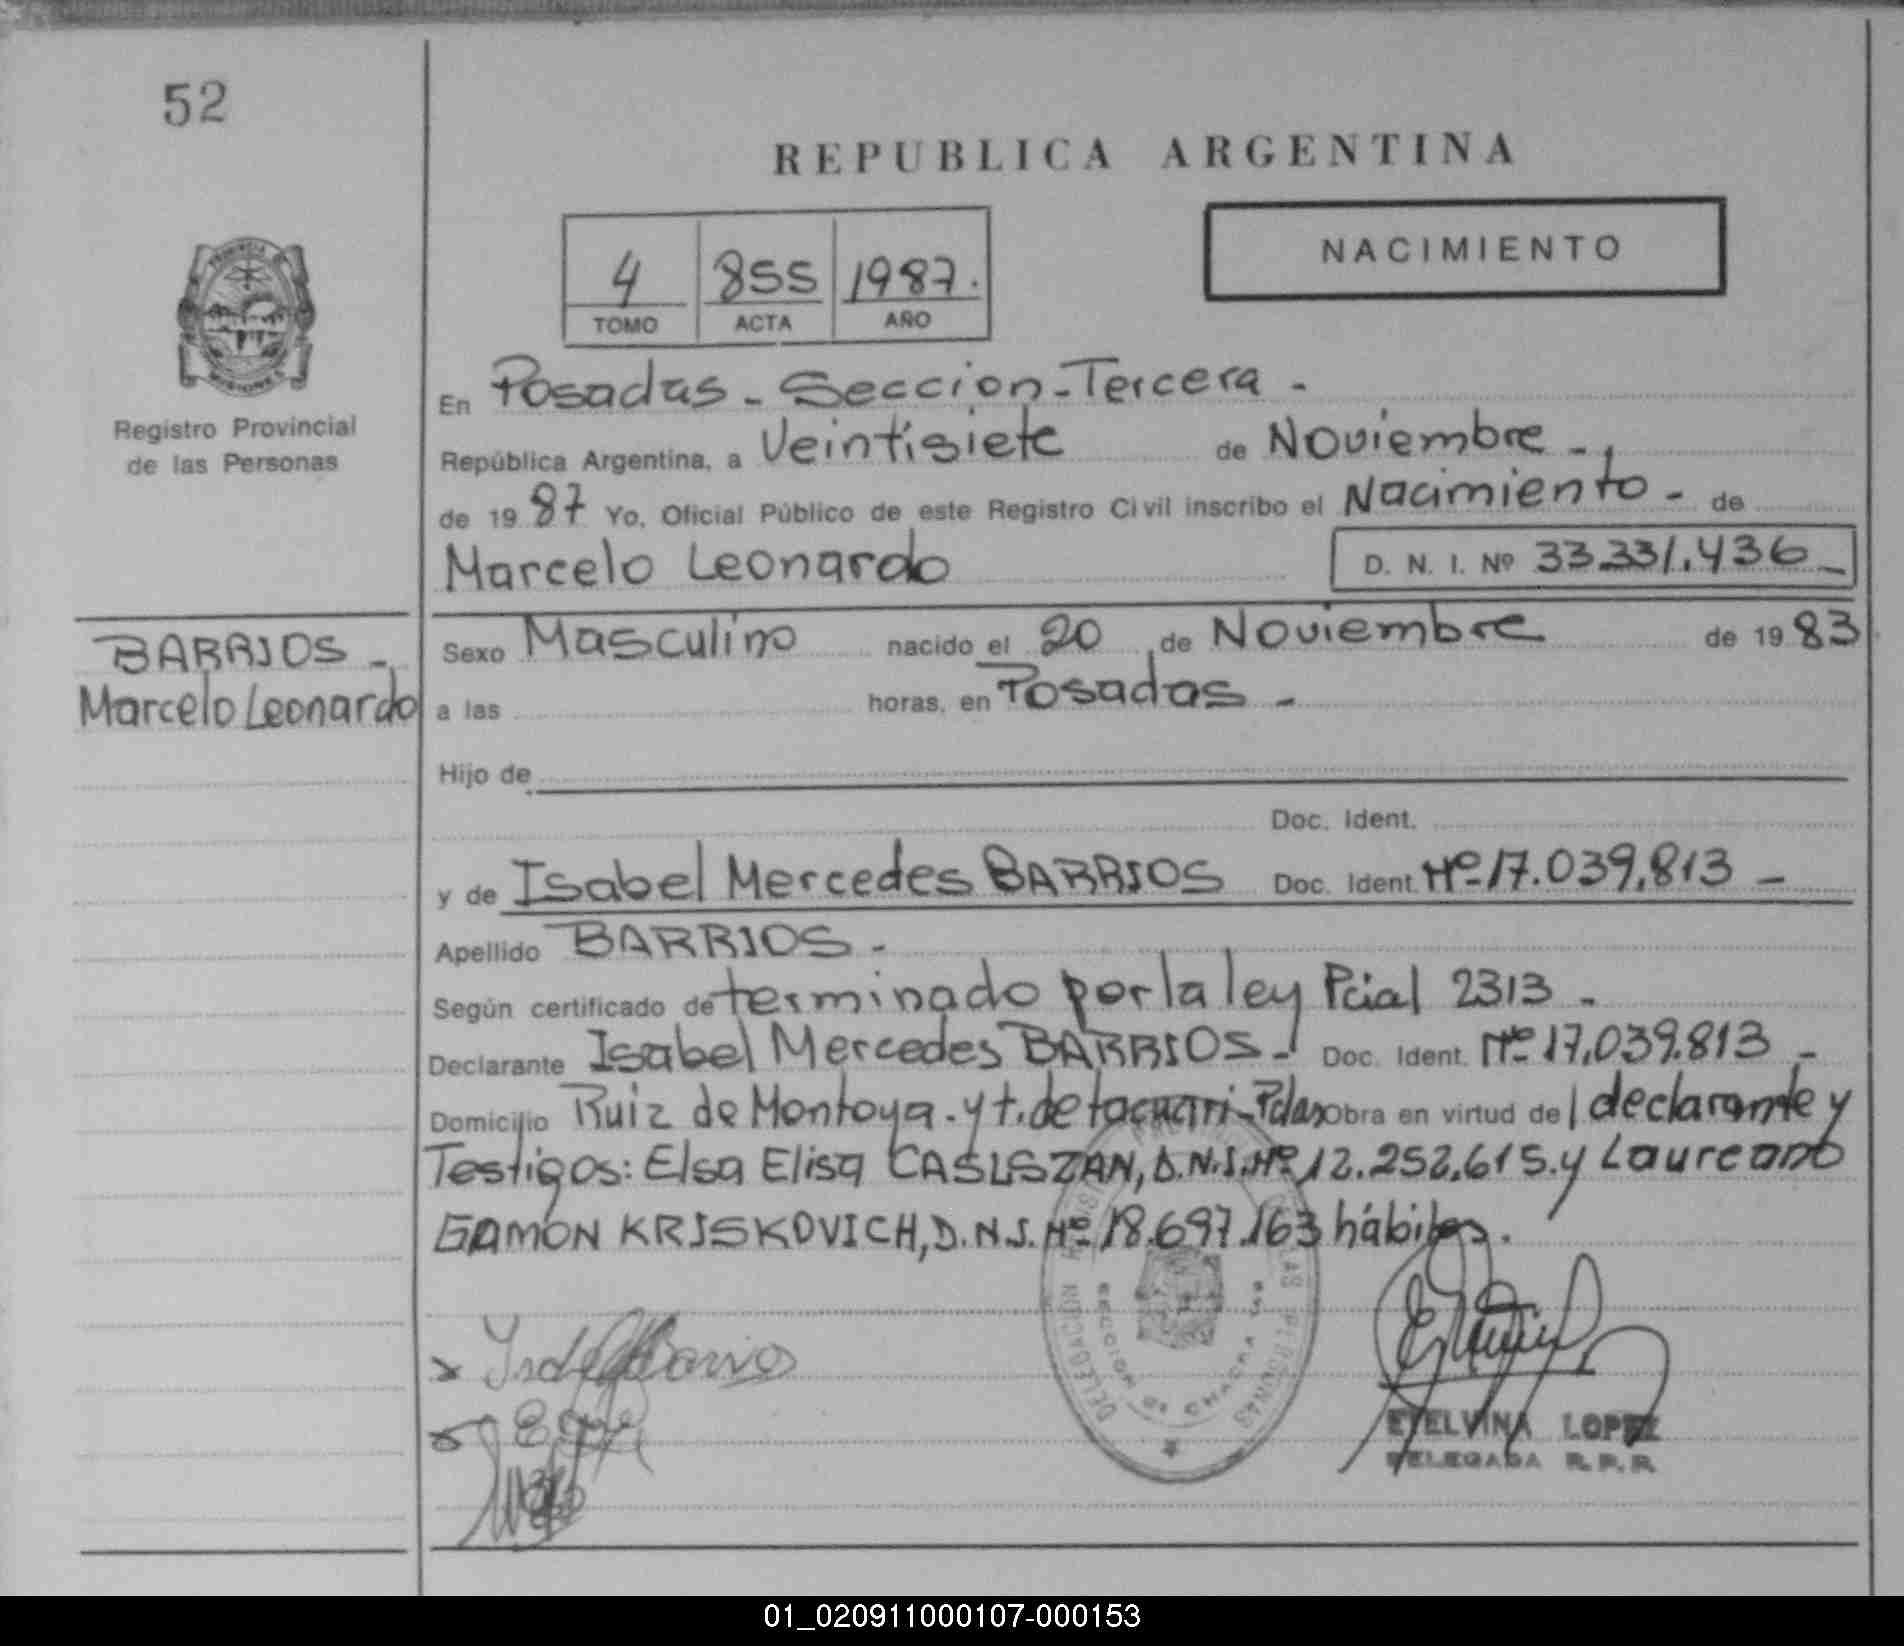 52
REPUBLICA ARGENTINA
NACIMIENTO
4 855 1987.
TOMO ACTA AÑO
PROVINCIA DE
MISIONES
Registro Provincial
de las Personas
En Posadas - Seccion - Tercera -
República Argentina, a Veintisiete de Noviembre -
de 19 87 Yo, Oficial Público de este Registro Civil inscribo el Nacimiento - de
Marcelo Leonardo D. N. I. Nº 33.331.436 -
BARRIOS -
Marcelo Leonardo
Sexo Masculino nacido el 20 de Noviembre de 19 83
a las horas, en Posadas -
Hijo de
Doc. Ident.
y de Isabel Mercedes BARRIOS Doc. Ident. Nº 17.039.813 -
Apellido BARRIOS -
Según certificado de terminado por la ley Pcial 2313 -
Declarante Isabel Mercedes BARRIOS - Doc. Ident. Nº 17.039.813 -
Domicilio Ruiz de Montoya - y t. de tacuari - Pdas Obra en virtud de l declarante y
Testigos: Elsa Elisa CASISZAN, D.N.I. Nº 12.252.615. y Laureano
GAMON KRISKOVICH, D.N.I. Nº 18.697.163 hábiles.
DELEGACION
SECCION CHACRA
ETELVINA LOPEZ
DELEGADA R.P.P.
01_020911000107-000153